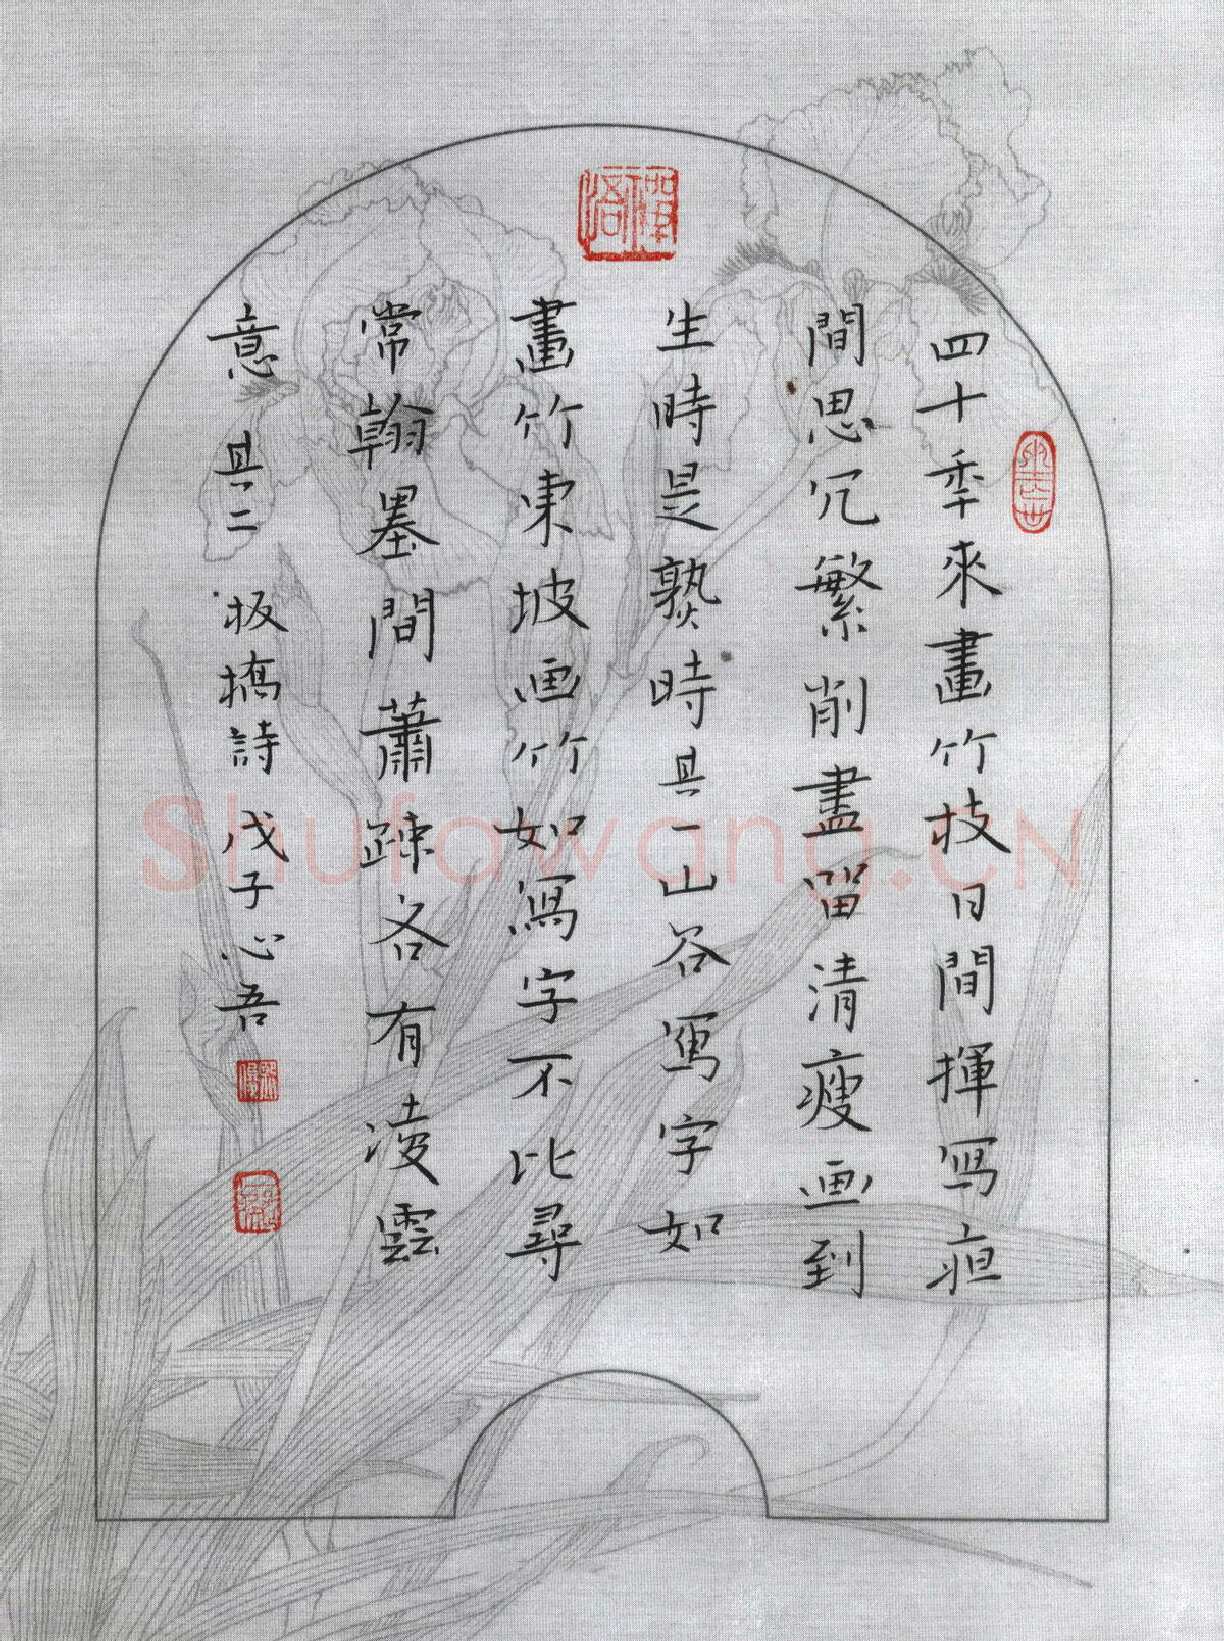 四十秊來畫竹枝日間揮寫疸
間思冗繁削盡留清瘦画到
生時是熟時其一山谷寫字如
畫竹東坡画竹如寫字不比尋
常翰墨間蕭疎各有凌雲
意 其二 板橋詩 戊子心吾
Shufawang.CN